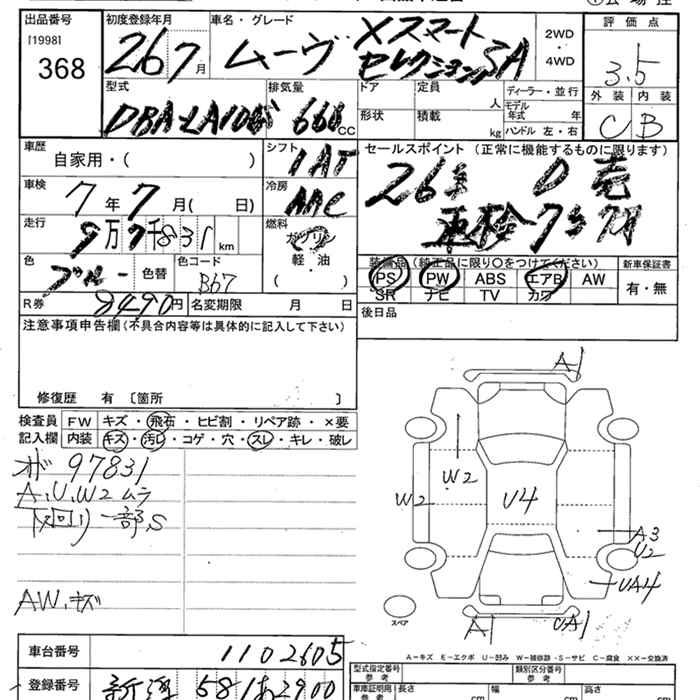 出品番号
[1998]
368
初度登録年月
26 7月
車名・グレード
ムーヴ
Xスマート
セレクションSA
2WD
・
4WD
評価点
3.5
外装 内装
C B
型式
DBA-LA100S
排気量
660CC
ドア
形状
定員 人
積載 kg
ディーラー・並行
モデル年式 年
ハンドル 左・右
車歴
自家用・( )
シフト
IAT
車検
7年7月( 日)
冷房
AAC
走行
9万7千831km
燃料
ガソリン
軽・油
( )
色
ブルー
色替
色コード
B67
R券 8490円
名変期限 月 日
セールスポイント (正常に機能するものに限ります)
車検7年7月
装備品(純正品に限り○をつけてください)
PS PW ABS エアB AW
SR ナビ TV カワ
新車保証書
有・無
後日品
注意事項申告欄(不具合内容等は具体的に記入して下さい)
修復歴 有 〔箇所 〕
検査員記入欄
FW キズ・飛石・ヒビ割・リペア跡・×要
内装 キズ・汚れ・コゲ・穴・スレ・キレ・破レ
97831
A,U,W2 ムラ
下回リ一部S
AW.キズ
A1
W2
W2
U4
A3
U2
UA4
A1
UA1
スペア
A-キズ E-エクボ U-凹み W-補修跡・S-サビ C-腐食 ××-交換済
車台番号 1102605
登録番号 新潟 581あ2900
型式指定番号
参考
類別区分番号
参考
車庫証明用
参考
長さ
cm
幅
cm
高さ
cm